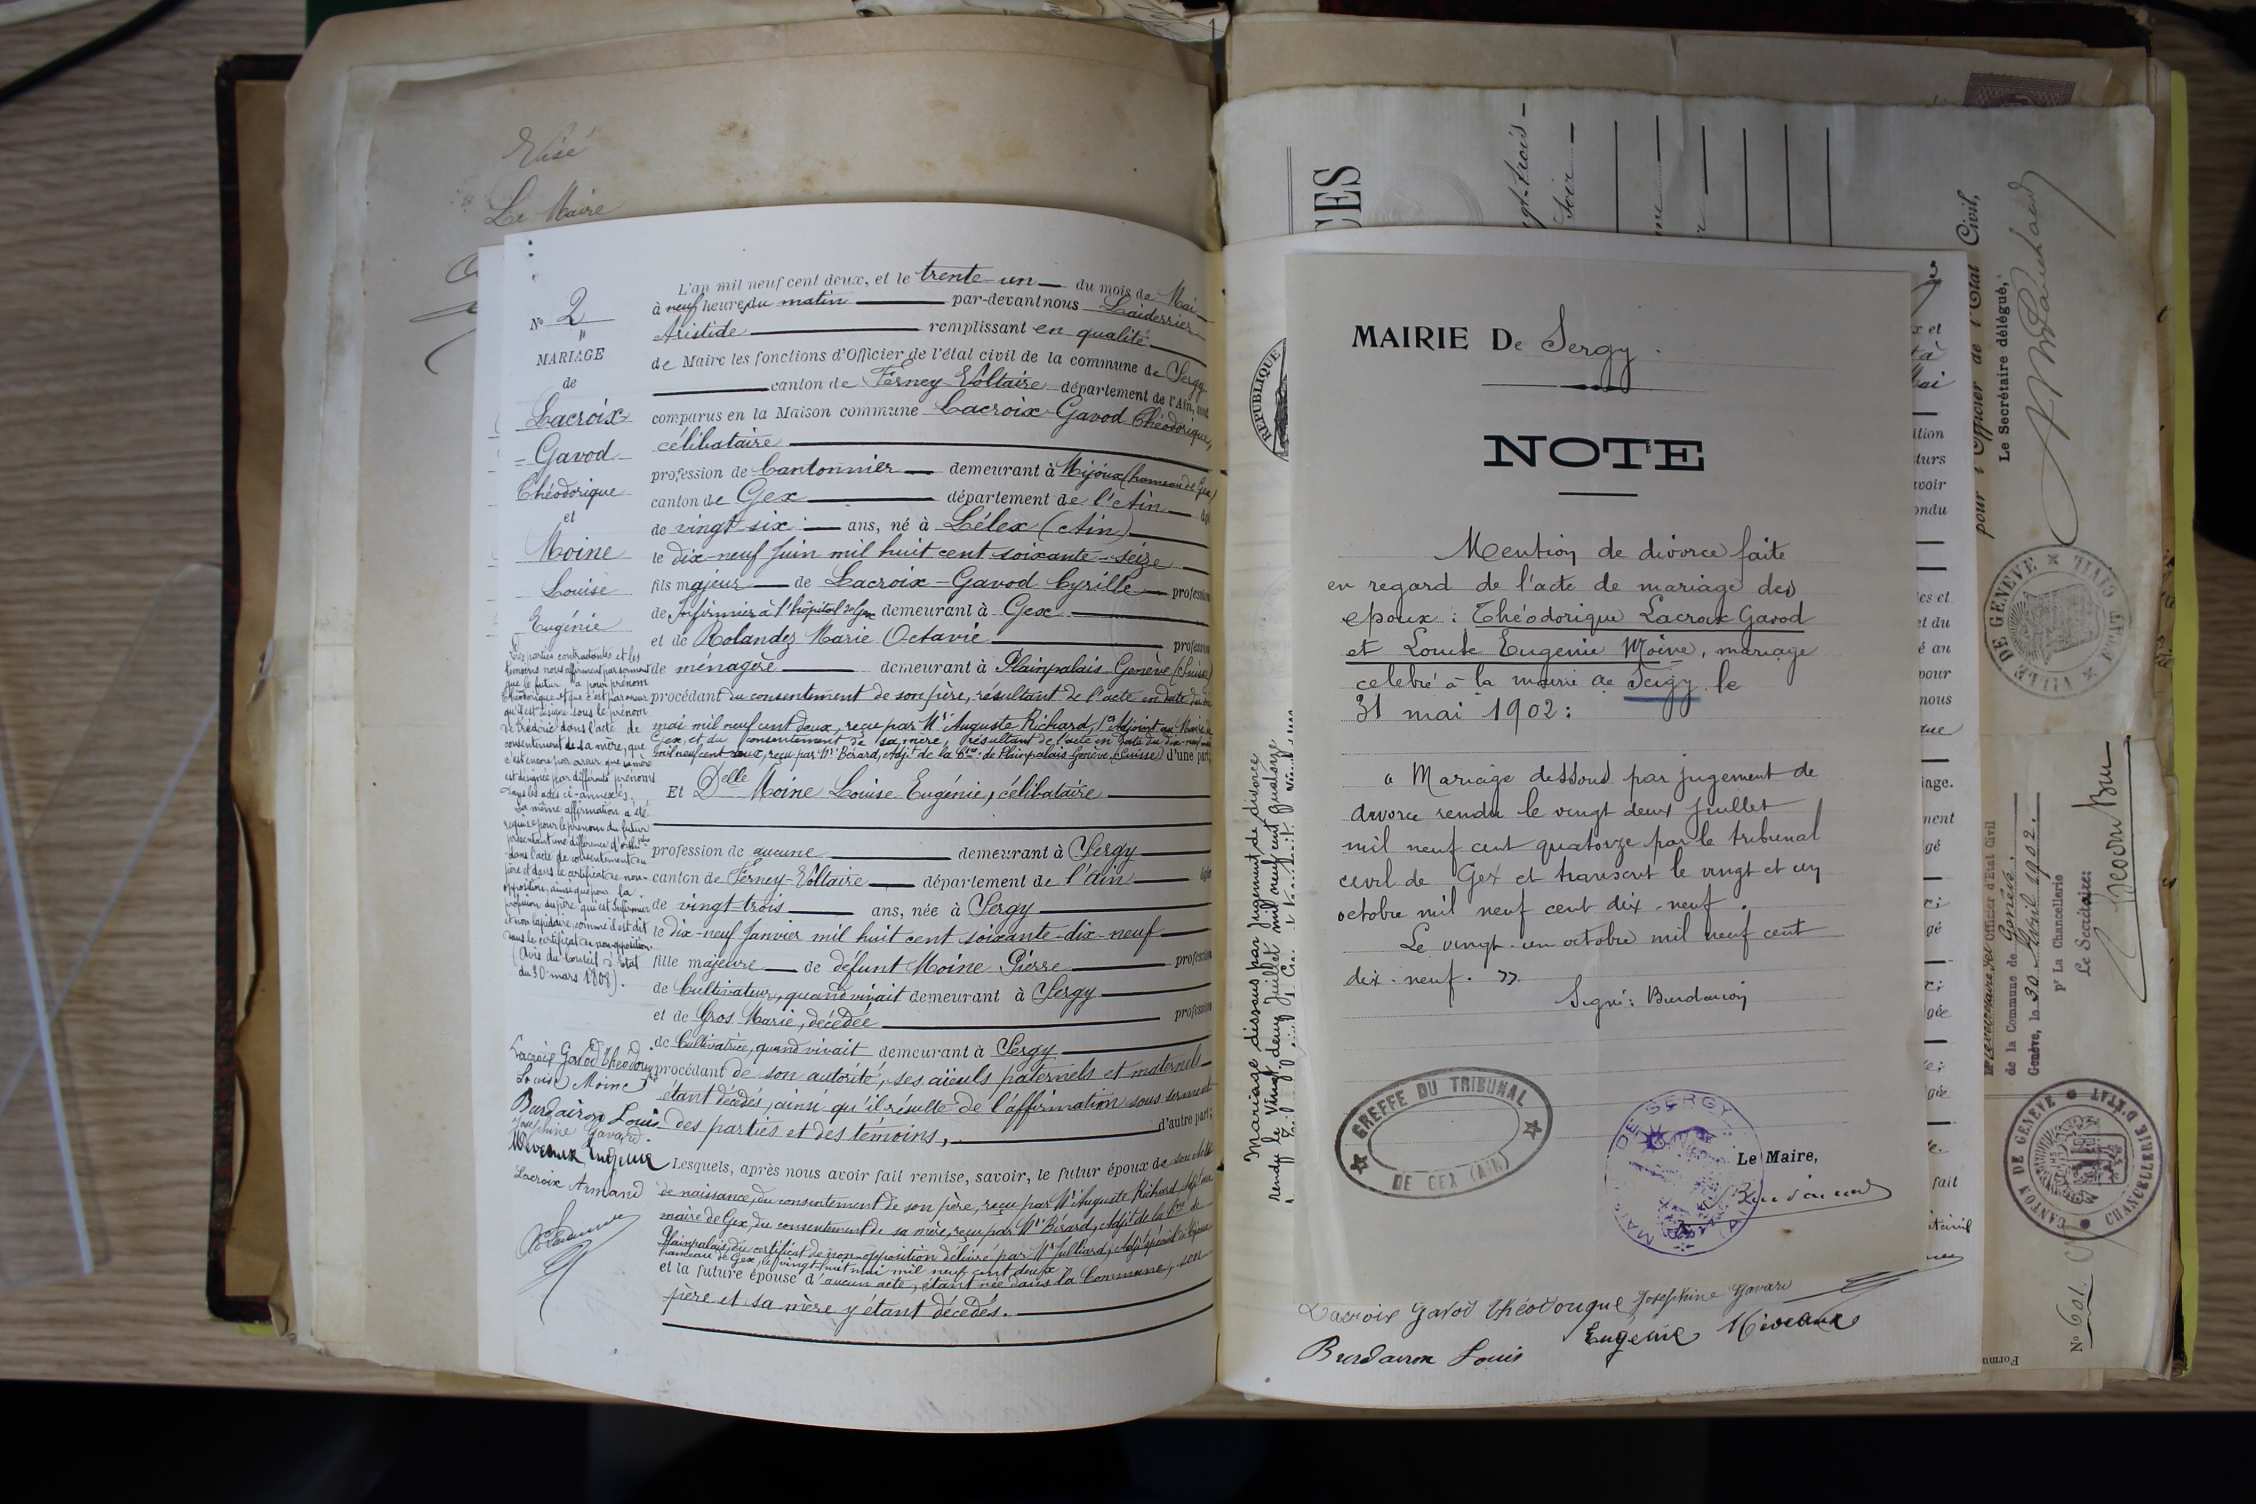 Visé
Le Maire
N° 2
MARIAGE
de
Lacroix
= Gavod
Théodorique
et
Moine
Louise
Eugénie
Les parties contractantes et les
témoins nous affirment par serment
que le futur a pour prénom
Théodorique et que c'est par erreur
qu'il est désigné sous le prénom
de Frédéric dans l'acte de
consentement de sa mère, que
c'est encore par erreur que sa mère
est désignée par différents prénoms
dans les actes ci-annexés.
La même affirmation a été
requise pour le prénom du futur
présentant une différence d'orth
dans l'acte de consentement du
père et dans le certificat de non-
opposition, ainsi que pour la
profession du père qui est Infirmier
et non lapidaire, comme il est dit
dans le certificat de non opposition.
(Avis du Conseil d'Etat
du 30 mars 1808).
Lacroix Gavod Théodorique
Louise Moine
Burdairon Louis
Joséphine Gavard
Niveaux Eugénie
Lacroix Armand
L'an mil neuf cent deux, et le trente-un du mois de Mai
à neuf heures du matin par-devant nous Laiderrier
Aristide remplissant en qualité
de Maire les fonctions d'Officier de l'état civil de la commune de Sergy
canton de Ferney-Voltaire département de l'Ain, sont
comparus en la Maison commune Lacroix-Gavod Théodorique,
célibataire
profession de Cantonnier demeurant à Mijoux (hameau de Gex)
canton de Gex département de l'Ain
de vingt-six ans, né à Lélex (Ain)
le dix-neuf juin mil huit cent soixante-seize
fils majeur de Lacroix-Gavod Cyrille profession
de Infirmier à l'hôpital de Gex demeurant à Gex
et de Rolandez Marie Octavie profession
de ménagère demeurant à Plainpalais Genève (Suisse)
procédant du consentement de son père, résultant de l'acte en date du
mai mil neuf cent deux, reçu par Mr Auguste Richard, 1er Adjoint au Maire de
Gex et du consentement de sa mère, résultant de l'acte en date du dix-neuf mai
mil neuf cent deux, reçu par Mr Bérard, Adjt de la Cne de Plainpalais Genève (Suisse) d'une part;
Et Delle Moine Louise Eugénie, célibataire
profession de aucune demeurant à Sergy
canton de Ferney-Voltaire département de l'Ain
de vingt-trois ans, née à Sergy
le dix-neuf Janvier mil huit cent soixante-dix-neuf
fille majeure de défunt Moine Pierre profession
de Cultivateur, quand vivait demeurant à Sergy
et de Gros Marie, décédée profession
de Cultivatrice, quand vivait demeurant à Sergy
procédant de son autorité, ses aïeuls paternels et maternels
étant décédés, ainsi qu'il résulte de l'affirmation sous serment
des parties et des témoins, d'autre part;
Lesquels, après nous avoir fait remise, savoir, le futur époux de son acte
de naissance, du consentement de son père, reçu par Mr Auguste Richard Adjt au
maire de Gex, du consentement de sa mère, reçu par Mr Bérard, Adjt de la Cne de
Plainpalais, du certificat de non-opposition délivré par Mr Julliard, Adjt spécial de Mijoux
hameau de Gex, le vingt-huit mai mil neuf cent deux
et la future épouse d'aucun acte, étant née dans la Commune, son
père et sa mère y étant décédés.
Mariage dissous par jugement de divorce
rendu le vingt deux Juillet mil neuf cent quatorze
RÉPUBLIQUE
MAIRIE De Sergy.
NOTE
Mention de divorce faite
en regard de l'acte de mariage des
époux : Théodorique Lacroix Gavod
et Louise Eugenie Moine, mariage
celebré à la mairie de Sergy le
31 mai 1902 :
" Mariage dissous par jugement de
divorce rendu le vingt deux Juillet
mil neuf cent quatorze par le tribunal
civil de Gex et transcrit le vingt et un
octobre mil neuf cent dix-neuf.
Le vingt-un octobre mil neuf cent
dix-neuf. "
Signé: Burdairon
GREFFE DU TRIBUNAL
DE GEX (AIN)
MAIRIE DE SERGY (AIN)
Le Maire,
Burdairon
Lacroix Gavod Théodorique Joséphine Gavard
Eugénie Niveaux
Burdairon Louis
CES
pour l'Officier de l'Etat Civil,
Le Secrétaire délégué,
VILLE DE GENÈVE
ETAT CIVIL
Officier d'Etat Civil
de la Commune de Genève.
Genève, le 30 Avril 1902.
pr La Chancellerie
Le Secrétaire:
CANTON DE GENÈVE
CHANCELLERIE D'ETAT
N° 601.